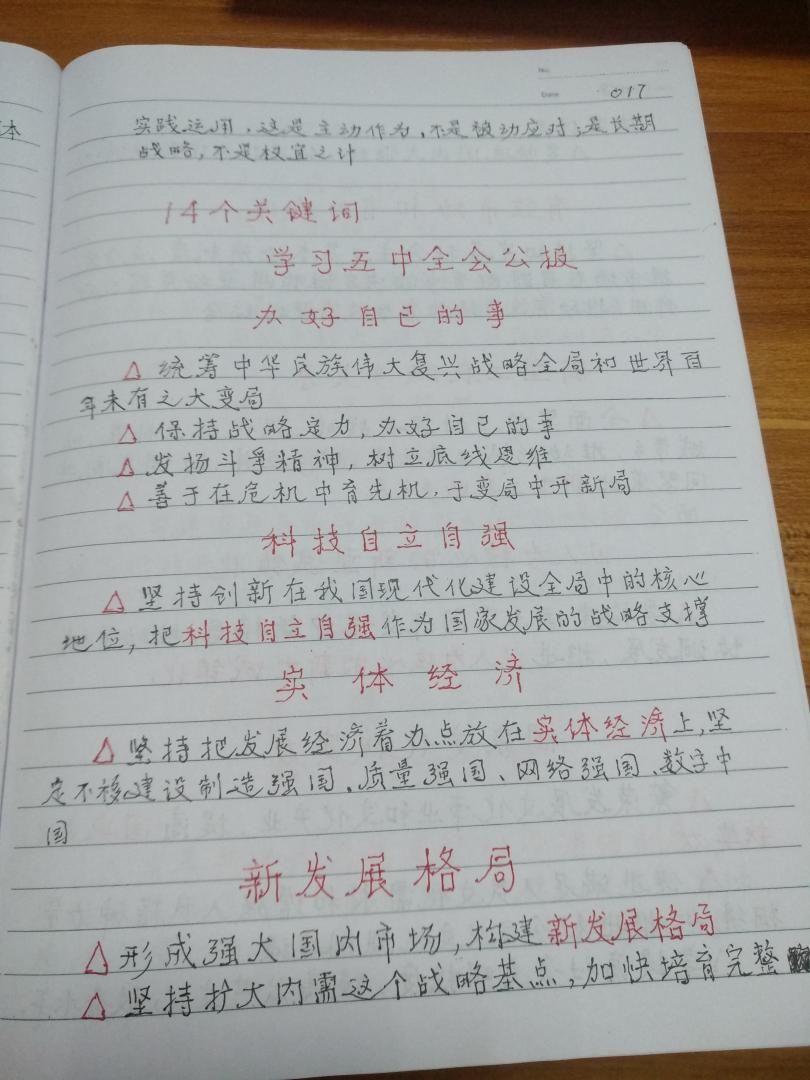 No.
Date 017
本
实践运用，这是主动作为，不是被动应对；是长期
战略，不是权宜之计
14个关键词
学习五中全会公报
办好自己的事
△ 统筹中华民族伟大复兴战略全局和世界百
年未有之大变局
△ 保持战略定力，办好自己的事
△ 发扬斗争精神，树立底线思维
△ 善于在危机中育先机，于变局中开新局
科技自立自强
△ 坚持创新在我国现代化建设全局中的核心
地位，把科技自立自强作为国家发展的战略支撑
实体经济
△ 坚持把发展经济着办点放在实体经济上，坚
定不移建设制造强国、质量强国、网络强国、数字中
国
新发展格局
△ 形成强大国内市场，构建新发展格局
△ 坚持扩大内需这个战略基点，加快培育完整